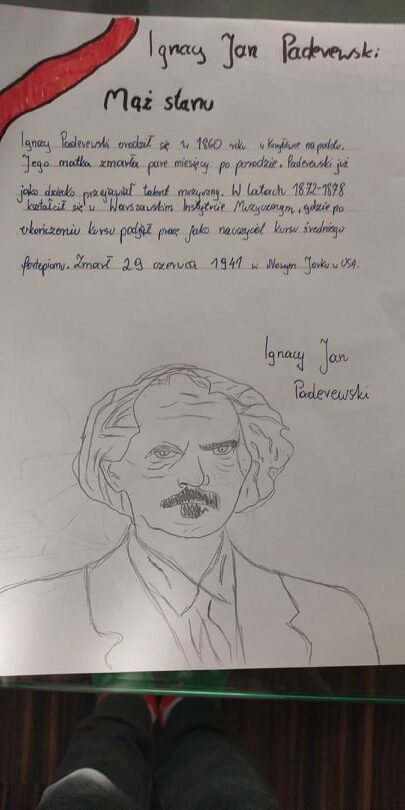 Ignacy Jan Paderewski
Mąż stanu
Ignacy Paderewski urodził się w 1860 roku w Kuryłówce na podolu.
Jego matka zmarła parę miesięcy po porodzie. Paderewski już
jako dziecko przejawiał talent muzyczny. W latach 1872-1878
kształcił się w Warszawskim Instytucie Muzycznym, gdzie po
ukończeniu kursu podjął pracę jako nauczyciel kursu średniego
fortepianu. Zmarł 29 czerwca 1941 w Nowym Jorku w USA.
Ignacy Jan
Paderewski